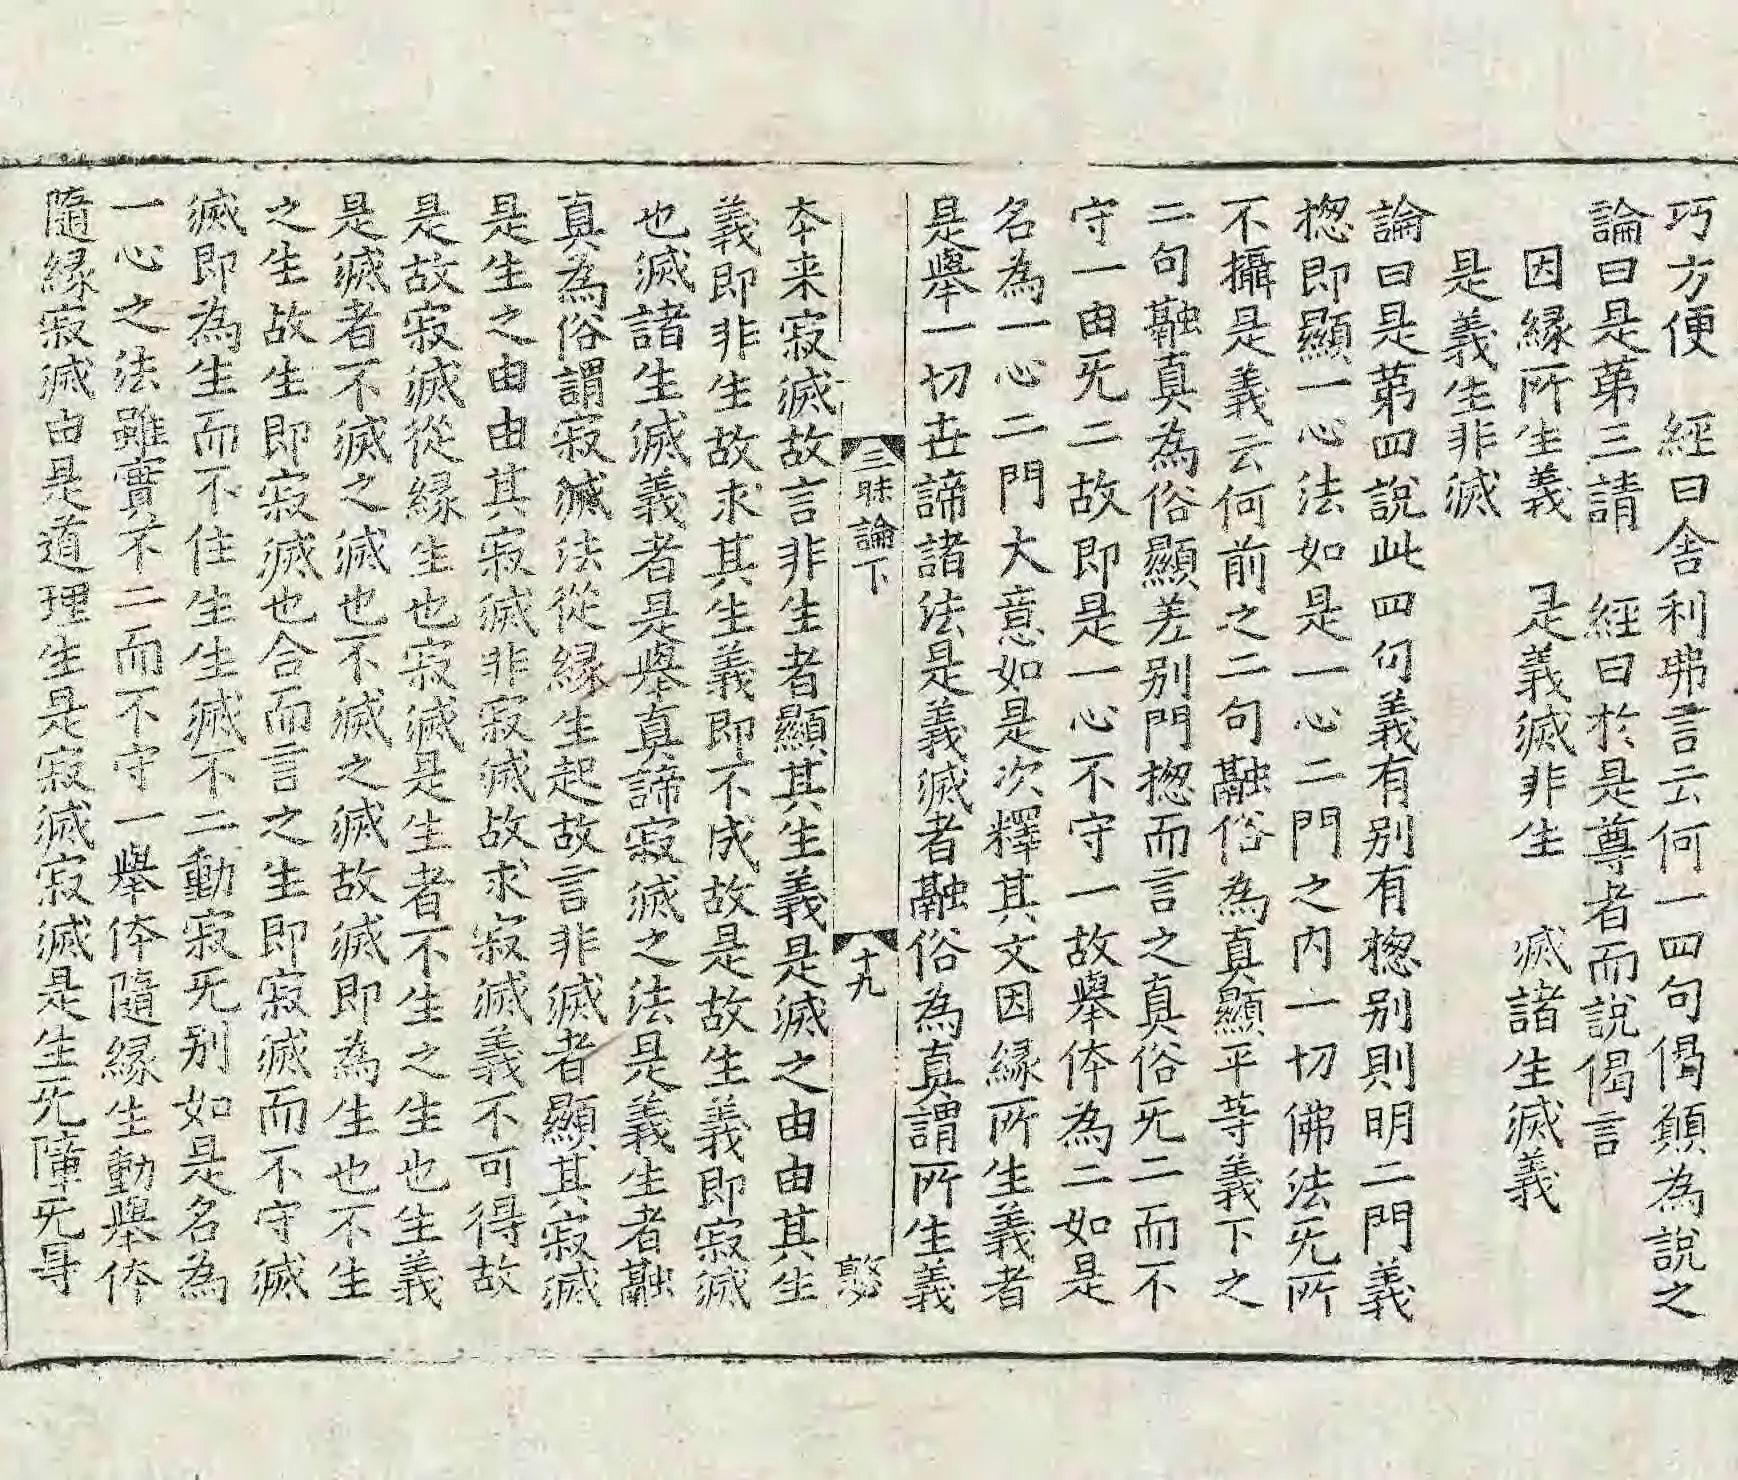 巧方便　經曰舍利弗言云何一四句偈願為說之
論曰是苐三請　經曰於是尊者而說偈言
因縁所生義　是義滅非生　滅諸生滅義
是義生非滅
論曰是苐四說此四句義有别有揔别則明二門義
揔即顯一心法如是一心二門之内一切佛法无所
不攝是義云何前之二句融俗為真顯平等義下之
二句融真為俗顯差别門揔而言之真俗无二而不
守一由无二故即是一心不守一故舉体為二如是
名為一心二門大意如是次釋其文因縁所生義者
是舉一切世諦諸法是義滅者融俗為真謂所生義
三昧論下　十九
本来寂滅故言非生者顯其生義是滅之由由其生
義即非生故求其生義即不成故是故生義即寂滅
也滅諸生滅義者是舉真諦寂滅之法是義生者融
真為俗謂寂滅法從縁生起故言非滅者顯其寂滅
是生之由由其寂滅非寂滅故求寂滅義不可得故
是故寂滅從縁生也寂滅是生者不生之生也生義
是滅者不滅之滅也不滅之滅故滅即為生也不生
之生故生即寂滅也合而言之生即寂滅而不守滅
滅即為生而不住生生滅不二動寂无别如是名為
一心之法雖實不二而不守一舉体隨縁生動舉体
隨縁寂滅由是道理生是寂滅寂滅是生无障无㝵